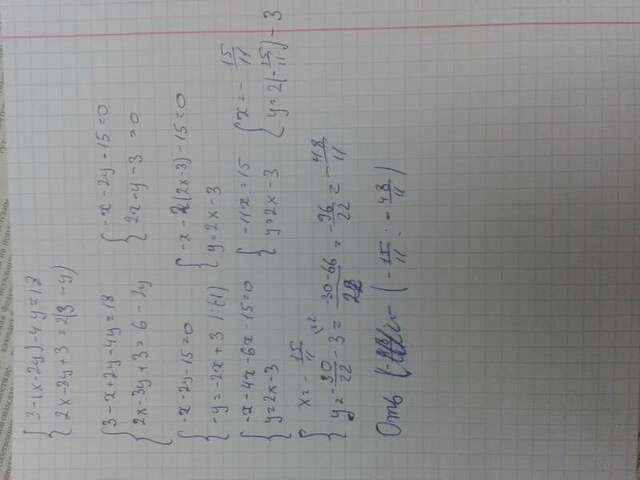 { 3-(x-2y)-4y=18
{ 2x-3y+3=2(3-y)
{ 3-x+2y-4y=18
{ 2x-3y+3=6-2y
{ -x-2y-15=0
{ 2x-y-3=0
{ -x-2y-15=0
{ -y=-2x+3 |:(-1)
{ -x-2(2x-3)-15=0
{ y=2x-3
{ -x-4x-6x-15=0
{ y=2x-3
{ -11x=15
{ y=2x-3
{ x=-15/11
{ y=2(-15/11)-3
{ x=-15/11
{ y=-30/22-3=-30-66/22=-96/22=-48/11
Отв (-15/11 : -48/11)